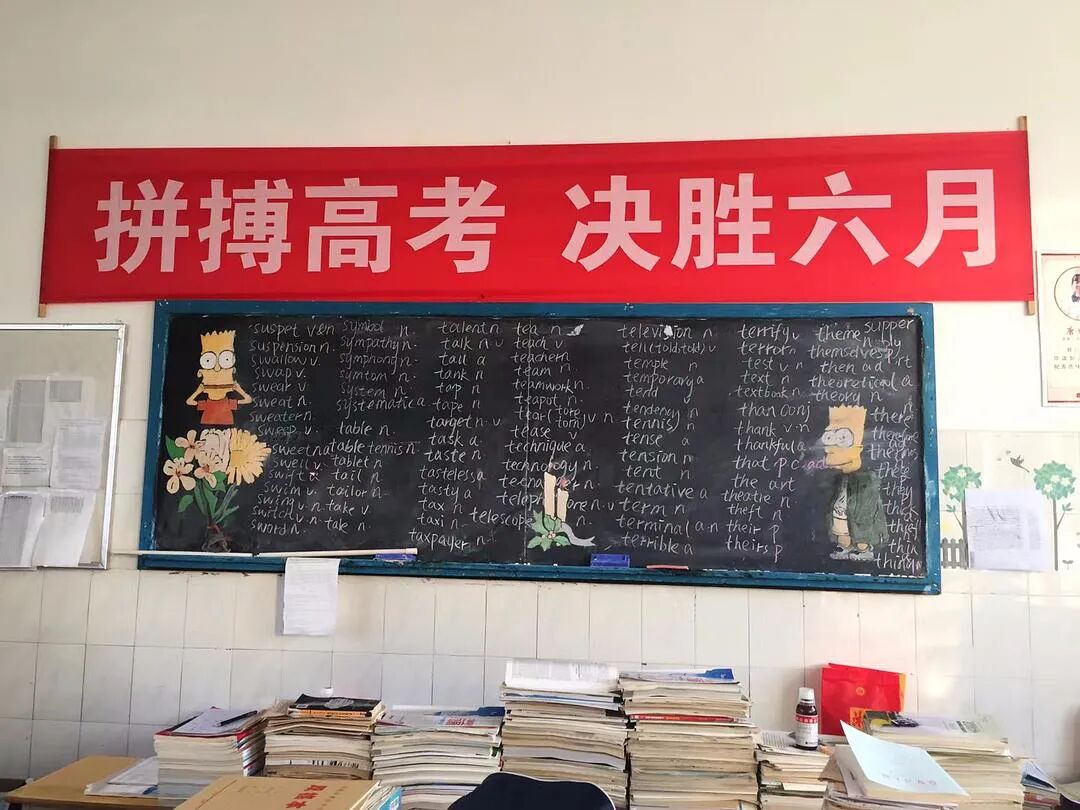 拼搏高考 决胜六月
suspet v.&n
suspension n.
swallow v.
swap v.
swear v.
sweat n.
sweater n.
sweep v.
sweet n a
swell v.
swift a.
swim v.
swing v.n.
switch v.n
sword n.
symbol n.
sympathy n.
symphony n.
symton n.
system n.
systematic a
table n.
table tennis n.
tablet n.
tail n.
tailor n.
take v.
take n.
talent n.
talk n.
tall a
tank n
tap n
tape n.
target n.
task a.
taste n.
tasteless a
tasty a
tax n
taxi n.
taxpayer n.
tea n
teach v.
teacher n
team n.
teamwork n.
teapot n.
tear (tore torn) v n
tease v
technique a
technology n.
telescope
television n
tell (told, told) v
temple n
temporary a
tend
tendency n
tennis) n
tense a
tension n
tent n
tentative a
term n
terminal a.n
terrible a
terrify v
terror n
test v n
text n
textbook n
than conj
thank v.n
thankful a
that p c ad
the art
theatre n
theft n
their p
theirs p
theme n
themselves p
then ad
theoretical a
theory n
supper n